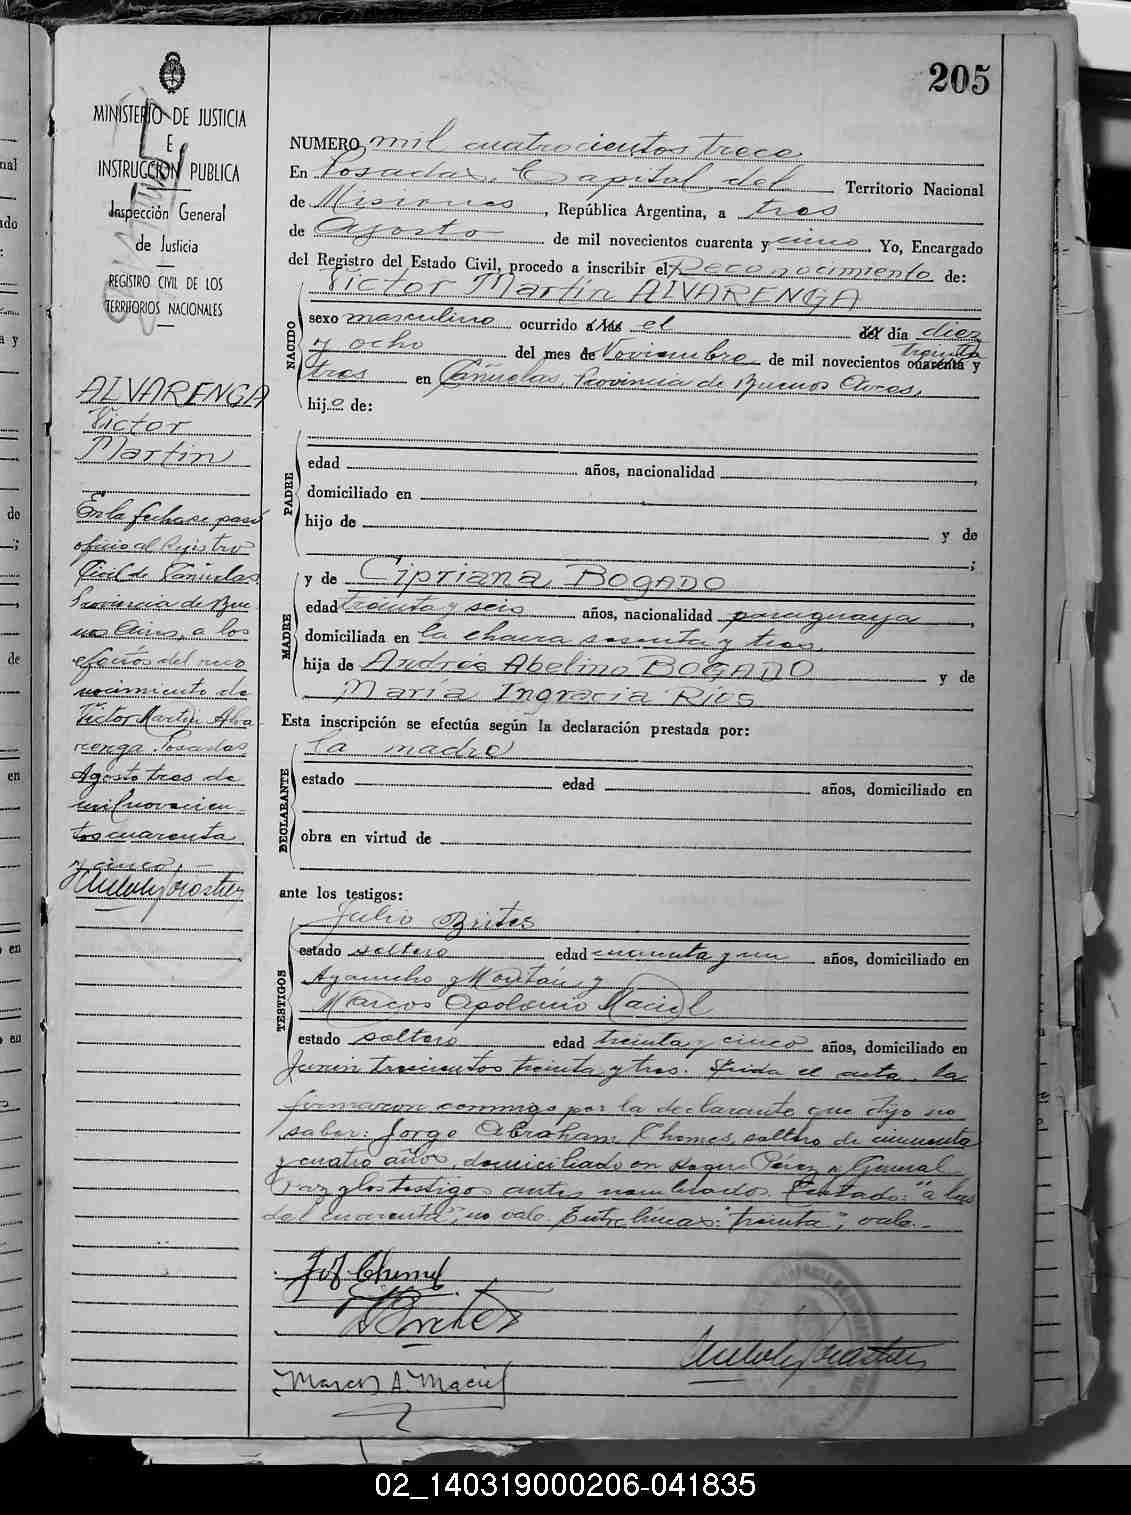 205
MINISTERIO DE JUSTICIA
E
INSTRUCCION PUBLICA
Inspección General
de Justicia
REGISTRO CIVIL DE LOS
TERRITORIOS NACIONALES
ALVARENGA
Victor
Martin
En la fecha se pasó
oficio al Registro
Civil de Cañuelas
Provincia de Bue-
nos Aires, a los
efectos del reco
nocimiento de
Victor Martin Alva-
renga. Posadas,
Agosto tres de
mil novecien-
tos cuarenta
y cinco.
NUMERO mil cuatrocientos trece
En Posadas, Capital del Territorio Nacional
de Misiones, República Argentina, a tres
de Agosto de mil novecientos cuarenta y cinco. Yo, Encargado
del Registro del Estado Civil, procedo a inscribir el Reconocimiento de:
Victor Martin ALVARENGA
NACIDO
sexo masculino ocurrido a las el del día diez
y ocho del mes de Noviembre de mil novecientos cuarenta treinta y
tres en Cañuelas, Provincia de Buenos Aires,
hijo de:
PADRE
edad años, nacionalidad ,
domiciliado en
hijo de y de
;
MADRE
y de Cipriana BOGADO
edad treinta y seis años, nacionalidad paraguaya ,
domiciliada en la chacra sesenta y tres,
hija de Andrés Abelino BOGADO y de
María Ingracia Ríos
Esta inscripción se efectúa según la declaración prestada por:
DECLARANTE
la madre
estado edad años, domiciliado en
obra en virtud de
ante los testigos:
TESTIGOS
Julio Brites
estado soltero edad cuarenta y un años, domiciliado en
Ayacucho y y
Marcos Apolonio Maciel
estado soltero edad treinta y cinco años, domiciliado en
Junin trescientos treinta y tres. Leida el acta, la
firmaron conmigo por la declarante que dijo no
saber: Jorge Abraham Chemes, soltero de cincuenta
y cuatro años, domiciliado en Roque Pérez y General
Paz y los testigos antes nombrados. Testado: "a las
del cuarenta", no vale. Entre líneas: "treinta", vale.-
Marcos A. Maciel
02_140319000206-041835